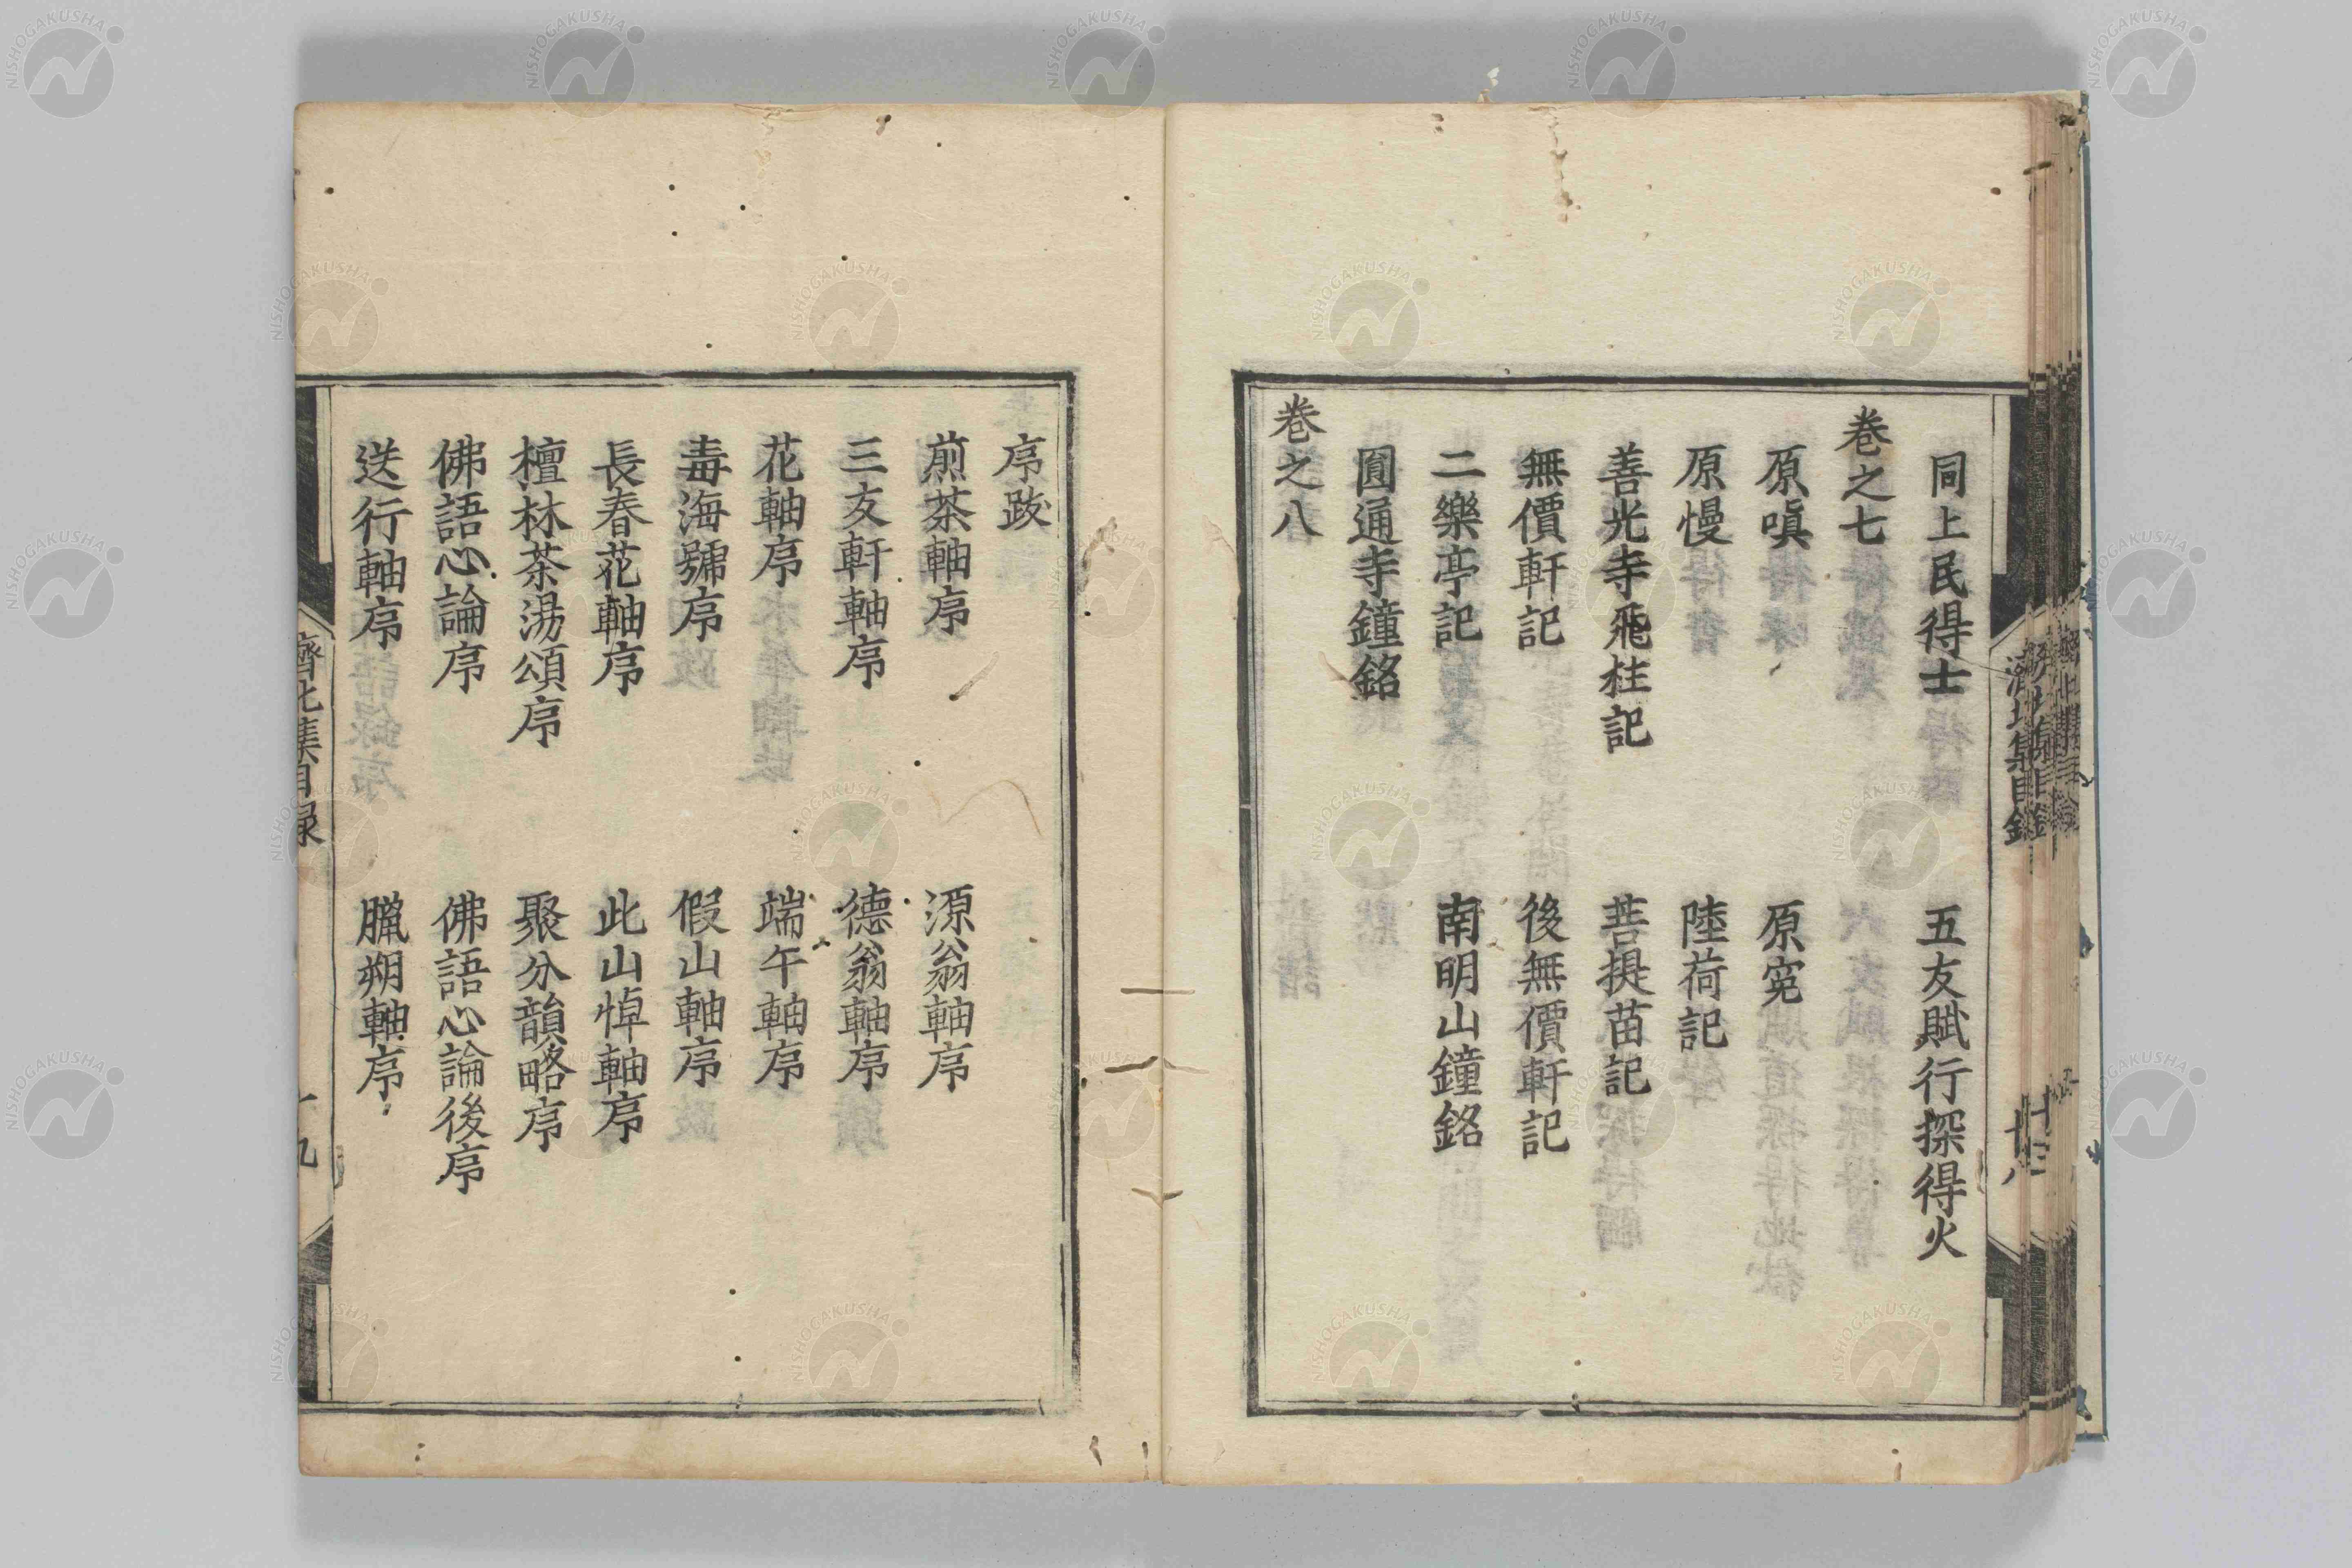 同上民得士　五友賦行探得火
卷之七
原嗔　原寃
原慢　陸荷記
善光寺飛柱記　菩提苗記
無價軒記　後無價軒記
二樂亭記　南明山鐘銘
圓通寺鐘銘
卷之八
序跋
煎茶軸序　源翁軸序
三友軒軸序　德翁軸序
花軸序　端午軸序
毒海號序　假山軸序
長春花軸序　此山悼軸序
檀林茶湯頌序　聚分韻略序
佛語心論序　佛語心論後序
送行軸序　臘朔軸序
濟北集目録
NISHOGAKUSHA